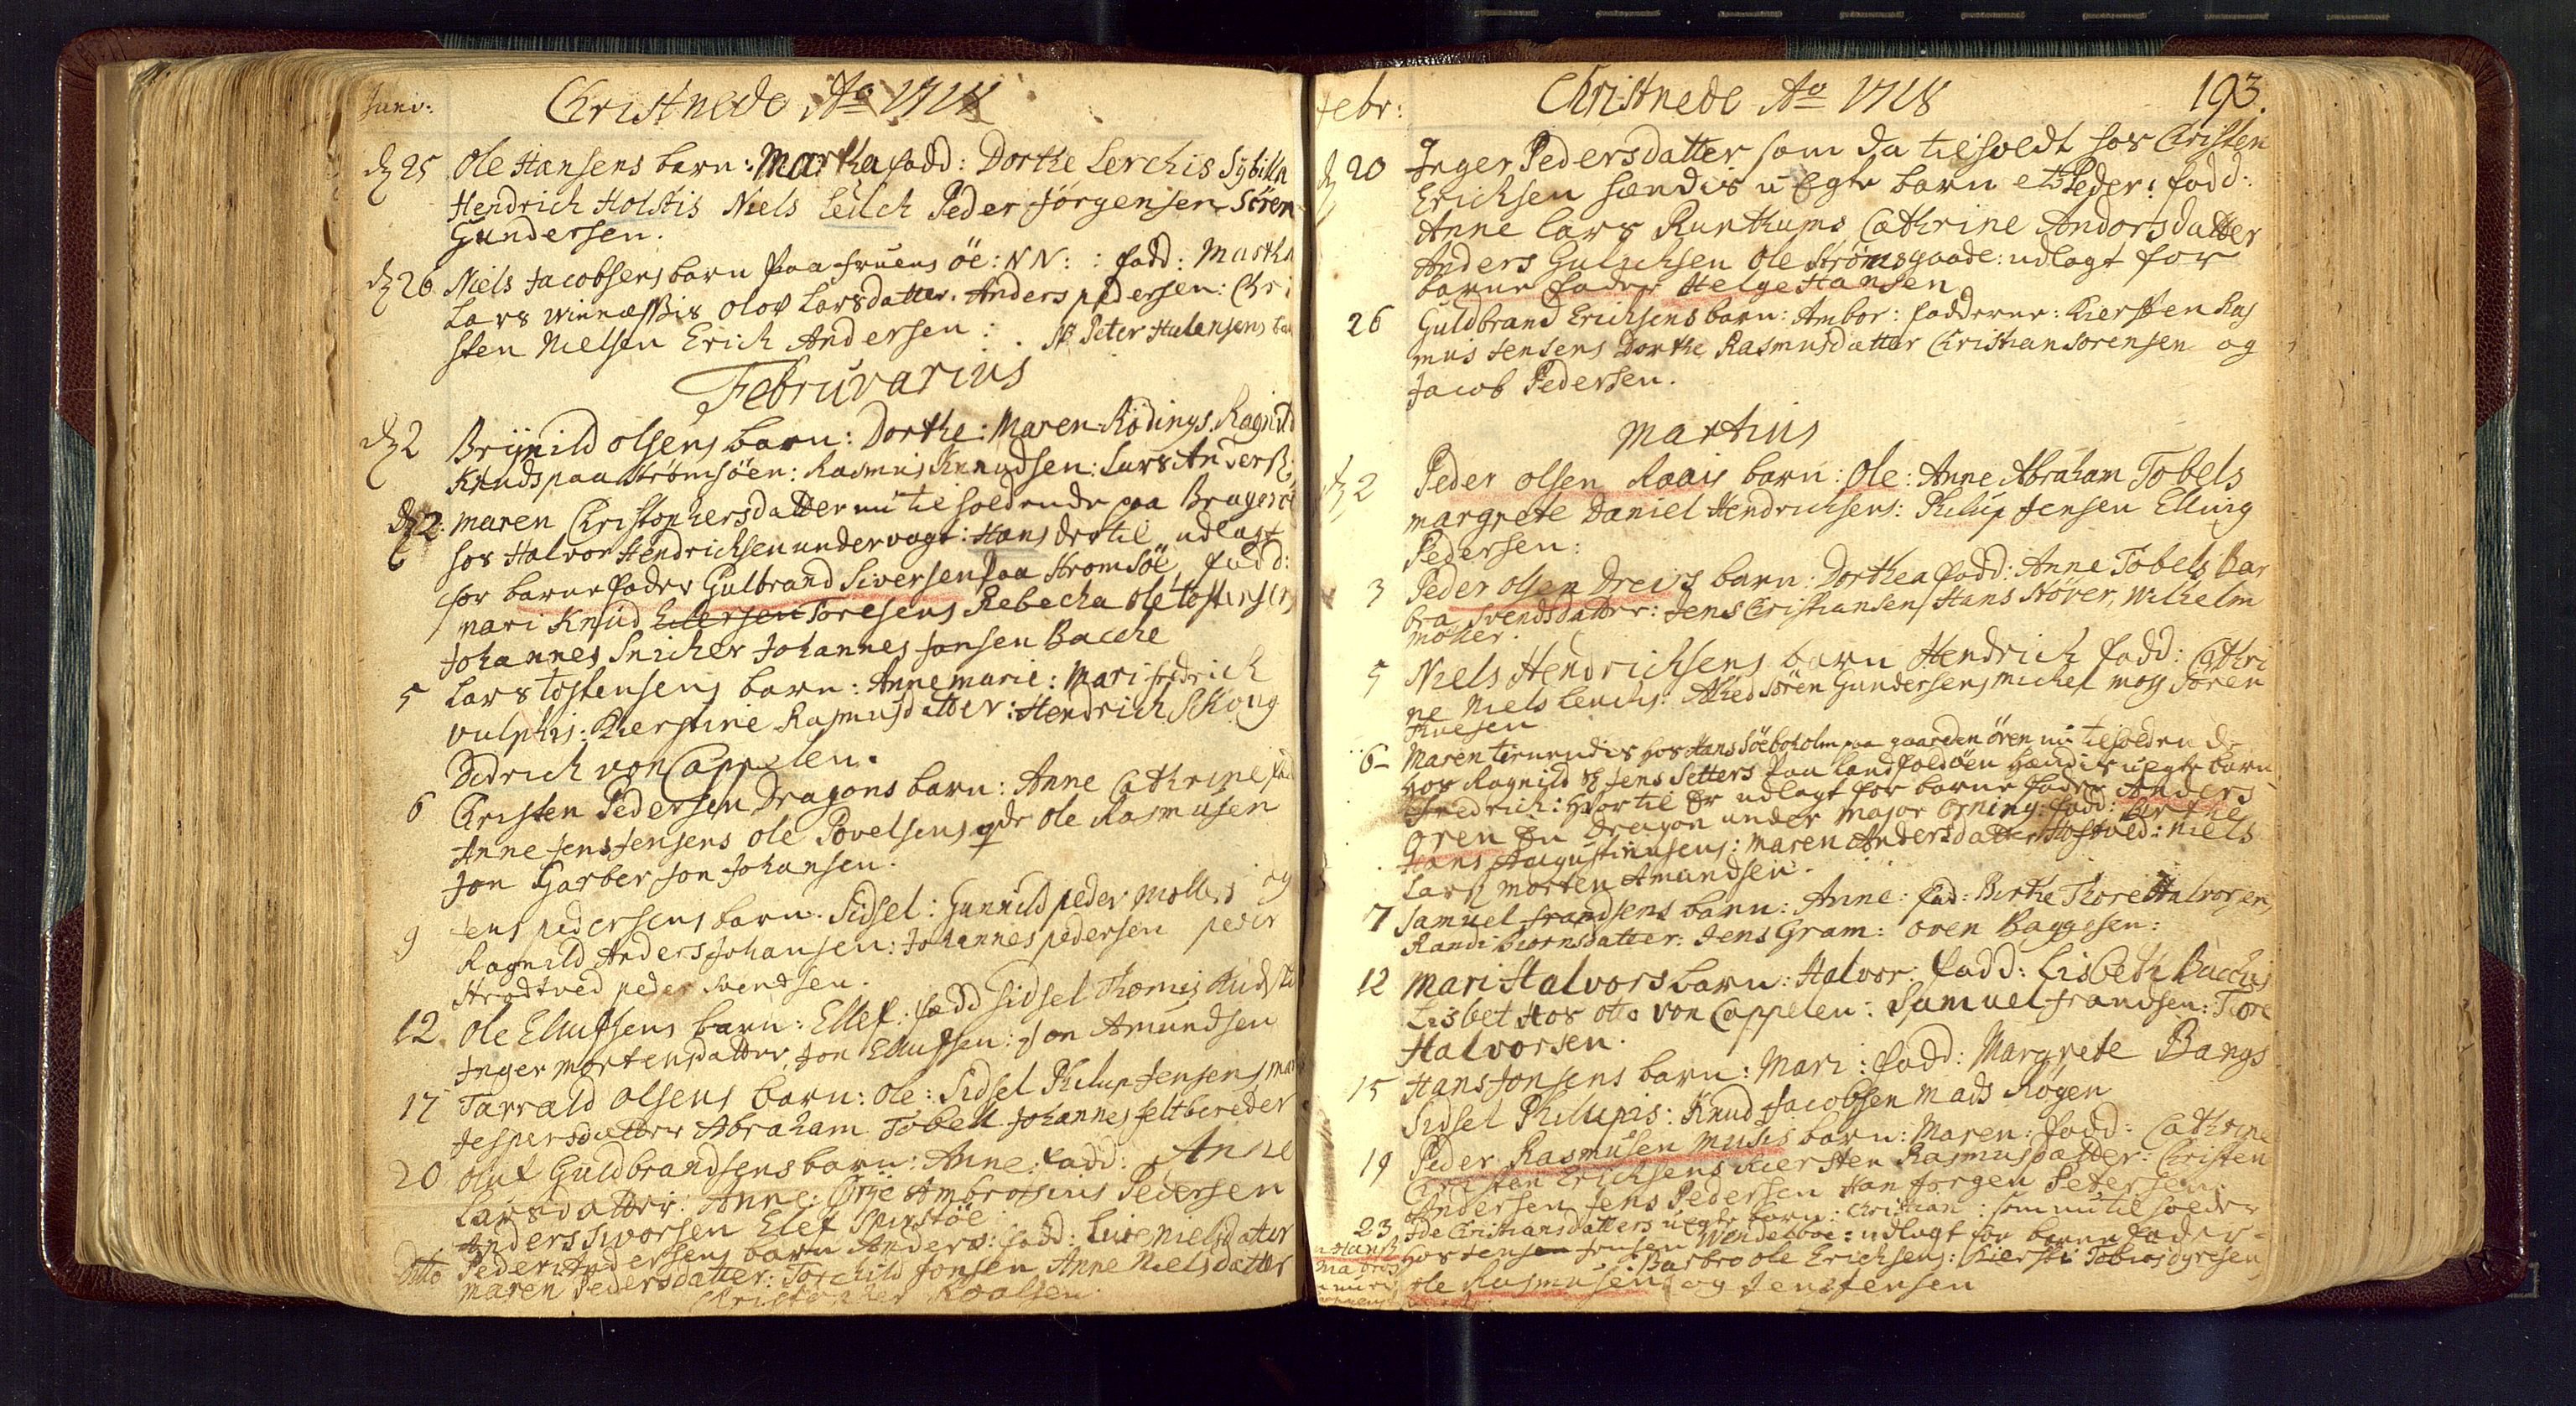 Christnede Ao 1718
d 25 Ole Hansens barn: Martha fadd: Dorthe Lerchis Sybilla
Hendrich Holstis Niels Leuch Peder Jörgensen Sören
Gundersen.
d 26 Niels Jacobsens barn paa fruens öe: NN: : fadd: Martha
Lars winnæssis Olov Larsdatter. Anders pedersen: Chri
sten Nielsen Erich Andersen : .
Februvarius
d 2 Brynild olsens barn: Dorthe: Maren Rödings. Ragnild
Knuds paa Strömsöen: Rasmus Knudsen: Lars Anders:
d 2: Maren Christophersdatter nu til holdende paa Bragernes
hos Halvor Hendrichsen undervogt: Hans der til udlagt
for barne fader Gulbrand Siversen paa Stromsöe, fadd:
mari Knud Toresens Rebecha ole tostensens
Johannes Snicher Johannes Jonsen Bacche
5 Lars tostensens barn: Anne marie: Mari fredrich
vulphis: Kierstine Rasmusdatter: Hendrich Skong
Didrich von Cappelen.
6 Christen Pedersen Dragons barn: Anne Cathrine fad
Anne Jens Jensens ole Povelsens qde ole Rasmusen
Jon Garber Jon Johansen.
9 Jens pedersens barn: Sidsel: Gunnild peder Mollers og
Ragnild Anders Johansen: Johannes pedersen peder
Stradtved peder Svendsen.
12. Ole Ellufsens barn: Ellef: fadd Sidsel Thomis
Inger Mortensdatter, Jon Ellufsen: Jon Amundsen
17 Tarrald olsens barn: Ole: Sidsel Philup Jensens mar
Jespersdatter Abraham Tobell Johannes feltbereder
20 Oluf Guldbrandsens barn: Anne: fadd: Anne
Larsdatter: Anne: Ambrosius Pedersen
Anders Sivorsen Elef Spirstöe
ditto Peder Andersens barn Anders: fadd: Live Nielsdatter
Maren Pedersdatter: Torchild Jonsen Anne Nielsdatter
Christopher Roalsen.
Febr: Christnede Ao 1718 193.
d 20 Inger Pedersdatter som da tilholdt hos Christen
Erichsen hændis u Egte barn Peder: fadd:
Anne Lars Runthums Cathrine Andorsdatter
Anders Gulichsen Ole Strömsgaade: udlagt for
barne fader Helge Hansen
26 Guldbrand Erichsens barn: Ambor: fadderne: Kiersten Ras
mus Jensens Dorthe Rasmusdatter Christian Sorensen og
Jacob Pedersen.
Martius
d 2 Peder olsen Raais barn: Ole: Anne Abraham Tobels
margrete Daniel Hendrichsens: Philup Jensen Elling
Pedersen:
3 Peder olsen Dreiers barn: Dorthea fadd: Anne Tobels Bar
bra Svendsdatter: Jens Christiansen Hans Störer, Wilhelm
moller.
5 Niels Hendrichsens barn Hendrich fadd: Cathri
ne Niels Leuchs: Sören Gundersens Michel moss Sören
6 Maren tienendis hos Hans Söeboholm paa gaarden ören nu tilholdende
hos Ragnild Jens Setters paa Landfaldöen Hændis uegte barn
Fredrich: Hvor til er udlagt for barne fader Anders
Oren En Dragon under Major Orning: fadd: Dorthe
Hans Augustinusens: Maren Andersdatter Hostved: Niels
Lars Morten Amundsen.
7 Samuel frandsens barn: Anne: fad: Birthe Thore Halvorsens
Randi biornsdatter: Jens Gram: oven Baggesen:
12 Mari Halvors barn: Halvor: fadd: Lisbeth Bacchis
Lisbet Hos otto von Cappelen: Samuel frandsen: Tore
Halvorsen.
15 Hans Jonsens barn: Mari: fadd: Margrete Bangs
Sidsel Philupis: Knud Jacobsen Mads Rögen
19 Peder Rasmusen Musis barn: Maren: fadd: Cathrine
Christen Erichsens Kiersten Rasmusdatter: Christen
Andersen Jens Pedersen Han Jorgen Petersen
23 Ide Christiansdatters uegte barn: Christian: som nu tilholder
hos Jensen Wendelboe: udlagt for barne fader
: Barbro ole Erichsens: Kiersti Tobias dyresen
ole Rasmusen og Jens Jensen